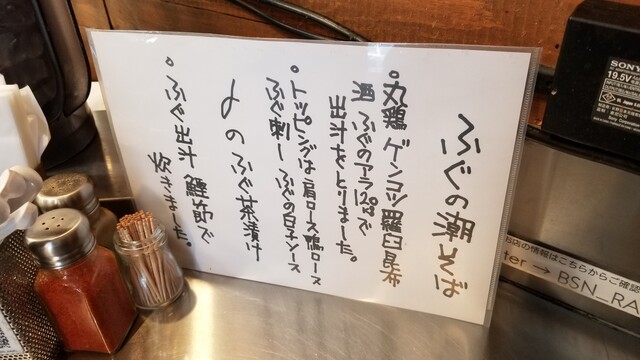 ふぐの潮そば
。丸鶏 ゲンコツ 羅臼昆布
酒 ふぐのアラ120kgで
出汁をとりました。
。トッピングは肩ロース 鴨ロース
ふぐ刺し ふぐの白子ソース
〆のふぐ茶漬け
。ふぐ出汁 鰹節で
炊きました。
SONY
19.5V
お店の情報はこちらからご確認
tter → BSN_RA